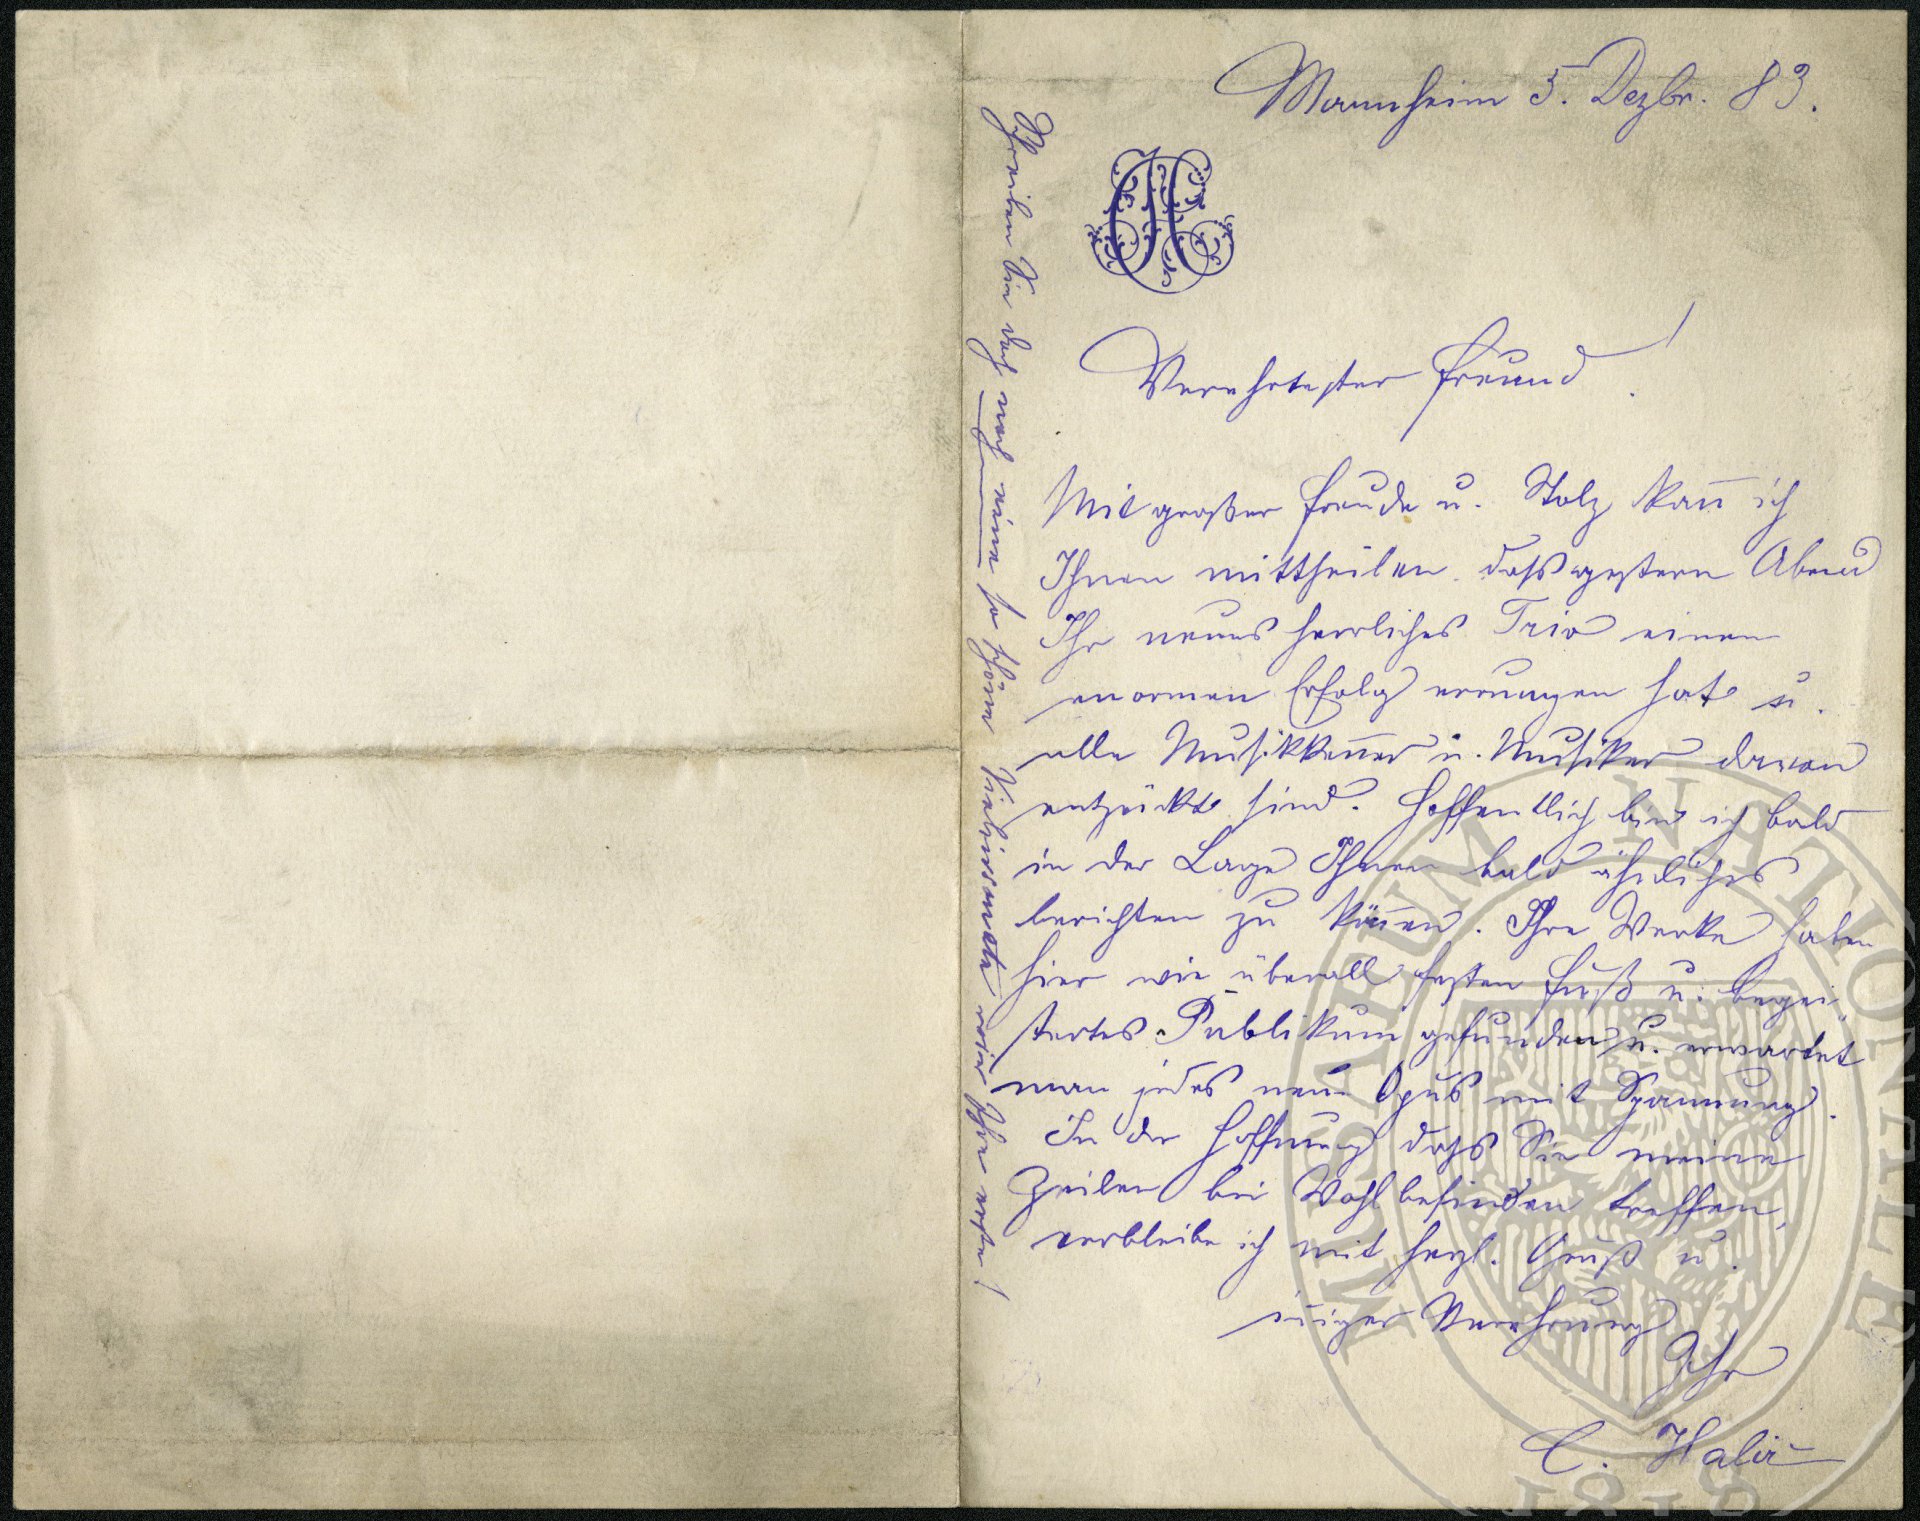 Mannheim 5. Dezbr. 83.
Verehrtester Freund!
Mit großer Freude u. Stolz kañ ich
Ihnen mittheilen dass gestern Abend
Ihr neues herrliches Trio einen
enormen Erfolg errungen hat u.
alle Musikkeñer u. Musiker davon
entzückt sind. Hoffentlich bin ich bald
in der Lage Ihnen bald ähnliches
berichten zu köñen. Ihre Werke haben
hier wie überall festen Fuß u. begei-
stertes Publikum gefunden u. erwartet
man jedes neue Opus mit Spannung.
In der Hoffnung dass Sie meine
Zeilen bei Wohlbefinden treffen,
verbleibe ich mit herzl. Gruß u.
iñiger Verehrung
Ihr
C. Halir
Schreiben Sie doch noch eine so schöne Violinsonate wie Ihre erste!
MUSAEUM NATIONALE
1818